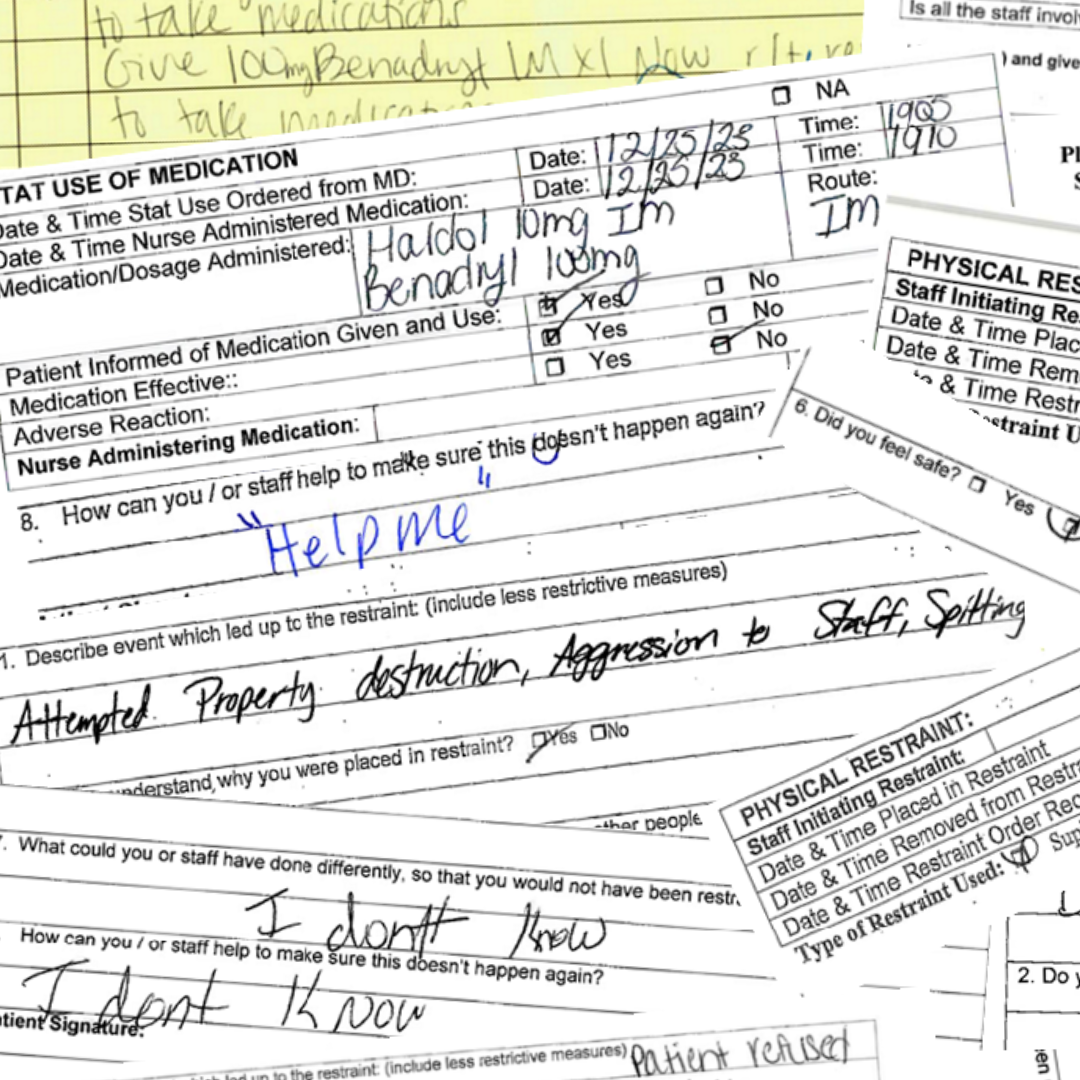 to take medications
Give 100mg Benadryl IM X1 Now r/t
to take
Is all the staff
) and give
NA
TAT USE OF MEDICATION
Date & Time Stat Use Ordered from MD:
Date: 12/25/23
Time: 1905
Date & Time Nurse Administered Medication:
Date: 12/25/23
Time: 1910
Medication/Dosage Administered:
Haldol 10mg IM
Benadryl 100mg
Route:
IM
Patient Informed of Medication Given and Use:
Yes No
Medication Effective::
Yes No
Adverse Reaction:
Yes No
Nurse Administering Medication:
8. How can you / or staff help to make sure this doesn't happen again?
"Help me"
PHYSICAL RES
Staff Initiating Re
Date & Time Plac
Date & Time Rem
& Time Restr
estraint U
6. Did you feel safe? Yes
1. Describe event which led up to the restraint: (include less restrictive measures)
Attempted Property destruction, Aggression to Staff, Spitting
nderstand why you were placed in restraint? Yes No
ther people
7. What could you or staff have done differently, so that you would not have been restr
I don't know
How can you / or staff help to make sure this doesn't happen again?
I dont know
tient Signature:
PHYSICAL RESTRAINT:
Staff Initiating Restraint:
Date & Time Placed in Restraint
Date & Time Removed from Restra
Date & Time Restraint Order Rec
Type of Restraint Used: Sup
2. Do y
led up to the restraint: (include less restrictive measures) Patient refused